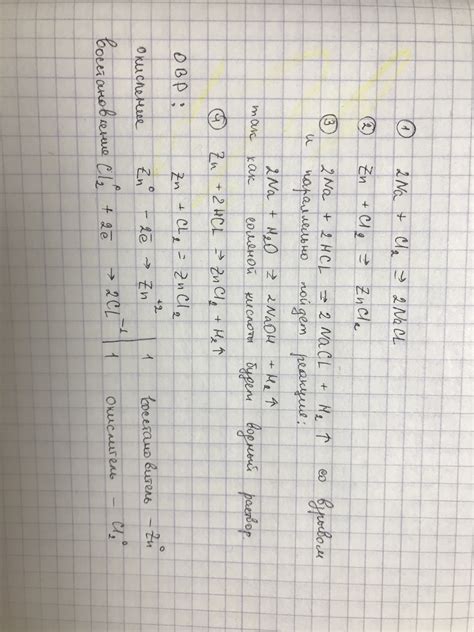 ① 2Na + Cl₂ ⇒ 2NaCl
② Zn + Cl₂ ⇒ ZnCl₂
③ 2Na + 2HCl ⇒ 2NaCl + H₂↑ со взрывом
и параллельно пойдет реакция:
2Na + H₂O ⇒ 2NaOH + H₂↑
так как соляной кислоты будет водный раствор
④ Zn + 2HCl ⇒ ZnCl₂ + H₂↑
ОВР:
Zn + CL₂ = ZnCl₂
окисление Zn⁰ - 2ē → Zn⁺² | 1 восстановитель - Zn⁰
восстановление Cl₂⁰ + 2ē → 2CL⁻¹ | 1 окислитель - Cl₂⁰